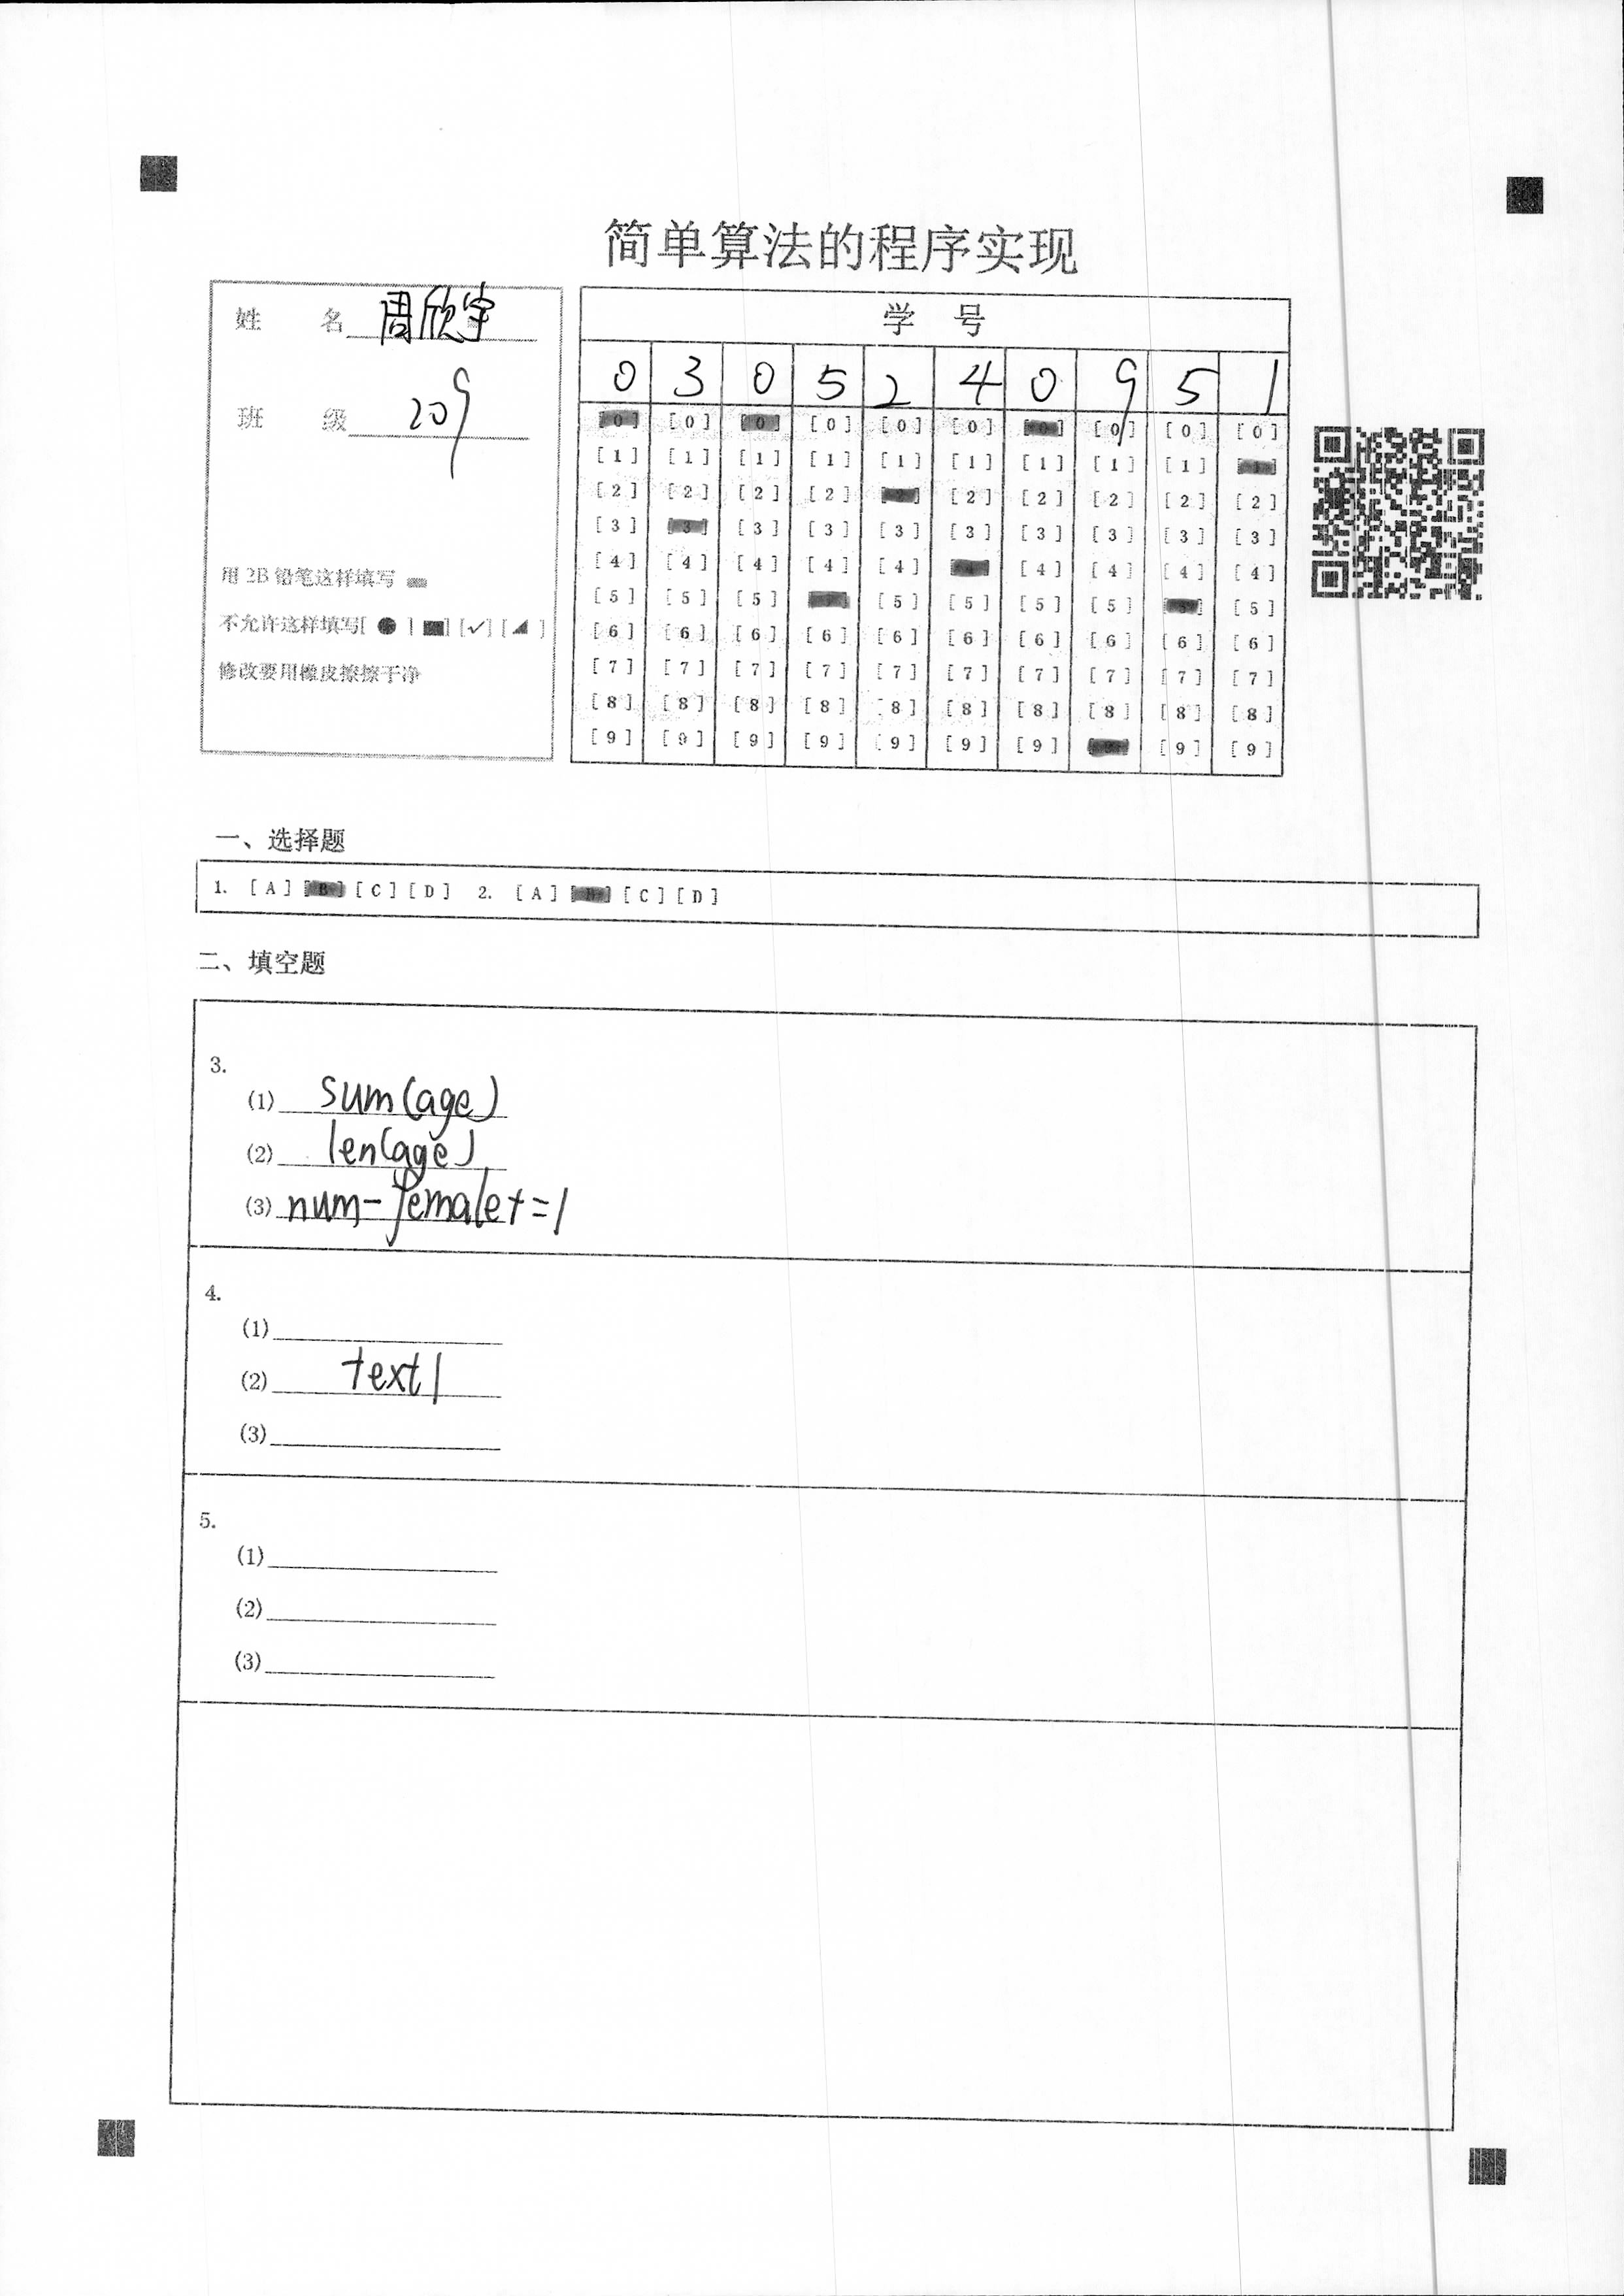 简单算法的程序实现
姓 名 周欣宇
班 级 209
用 2B 铅笔这样填写
不允许这样填写[ ● ] [■] [✓] [◢ ]
修改要用橡皮擦擦干净
学 号
0 3 0 5 2 4 0 9 5 1
[0] [0] [0] [0] [0] [0] [0] [0] [0] [0]
[1] [1] [1] [1] [1] [1] [1] [1] [1] [1]
[2] [2] [2] [2] [2] [2] [2] [2] [2] [2]
[3] [3] [3] [3] [3] [3] [3] [3] [3] [3]
[4] [4] [4] [4] [4] [4] [4] [4] [4] [4]
[5] [5] [5] [5] [5] [5] [5] [5] [5] [5]
[6] [6] [6] [6] [6] [6] [6] [6] [6] [6]
[7] [7] [7] [7] [7] [7] [7] [7] [7] [7]
[8] [8] [8] [8] [8] [8] [8] [8] [8] [8]
[9] [9] [9] [9] [9] [9] [9] [9] [9] [9]
一、选择题
1. [A] [B] [C] [D] 2. [A] [B] [C] [D]
二、填空题
3.
(1) sum(age)
(2) len(age)
(3) num-female+=1
4.
(1)
(2) text1
(3)
5.
(1)
(2)
(3)